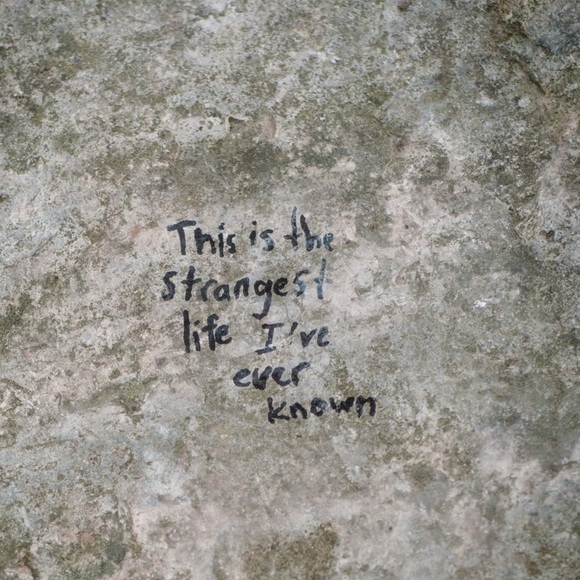 This is the
strangest
life I've
ever
known